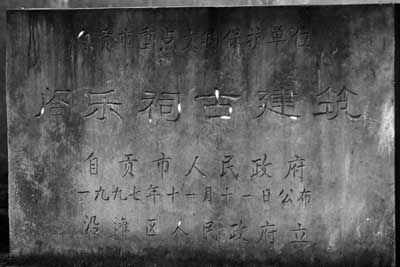 自贡市重点文物保护单位
乐祠古建筑
自贡市人民政府
一九九七年十一月十一日公布
沿滩区人民政府立